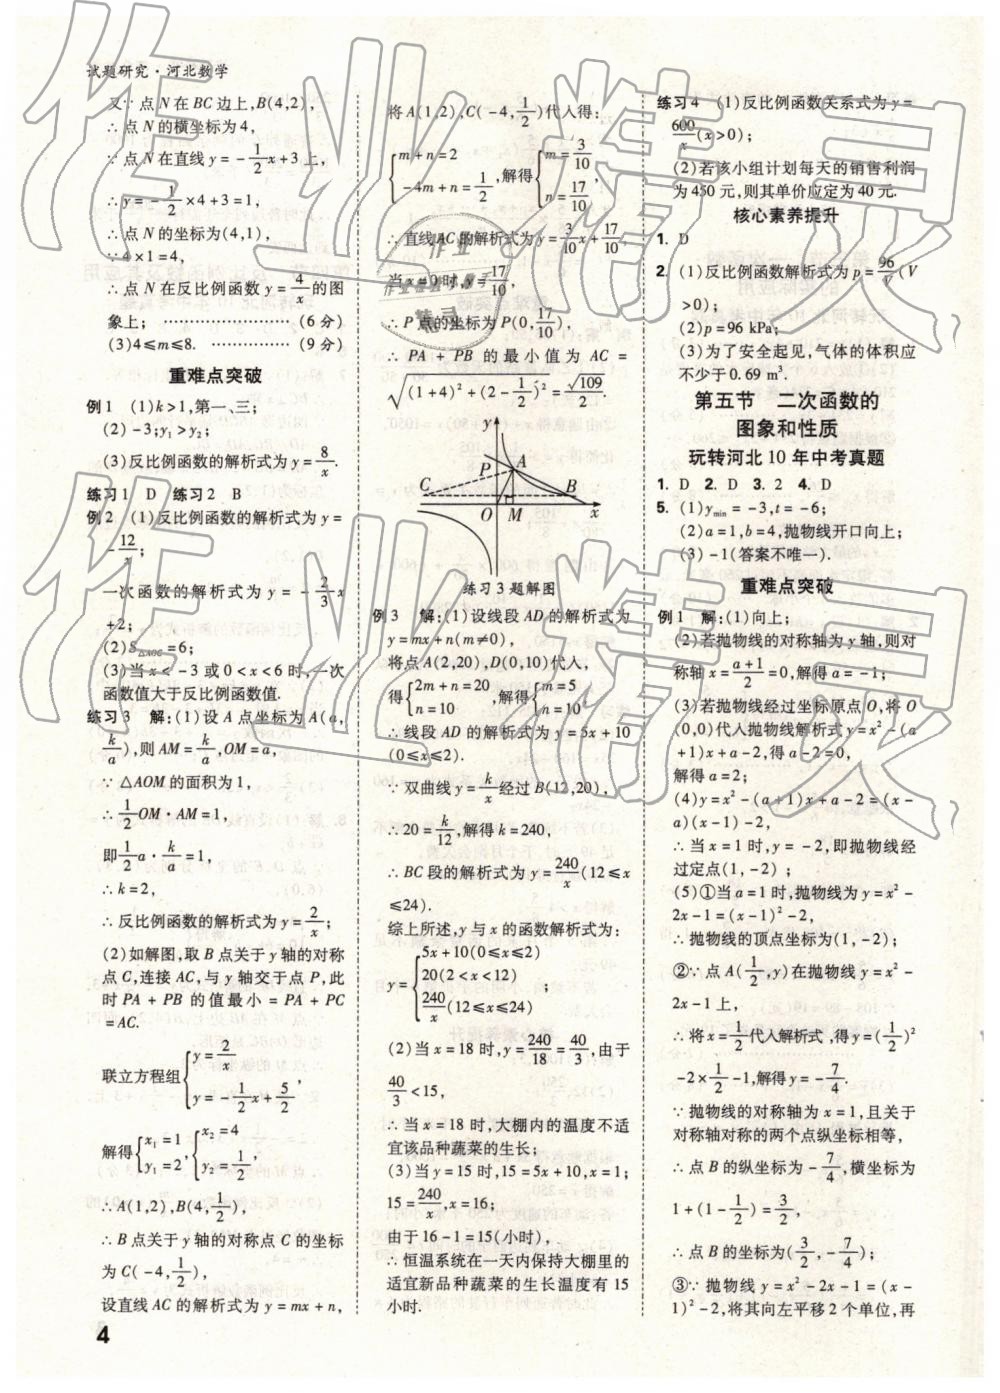 试题研究·河北数学
又∵点N在BC边上,B(4,2),
∴点N的横坐标为4,
∵点N在直线y=-1/2x+3上,
∴y=-1/2×4+3=1,
∴点N的坐标为(4,1),
∵4×1=4,
∴点N在函数y=4/x的图
象上; ………………(6分)
(3)4≤m≤8. …………(9分)
重难点突破
例1 (1)k>1,第一、三;
(2)-3;y₁>y₂;
(3)反比例函数的解析式为y=8/x.
练习1 D 练习2 B
例2 (1)反比例函数的解析式为y=
-12/x;
一次函数的解析式为y=-2/3x
+2;
(2)S△AOC=6;
(3)当x<-3或0<x<6时,一次
函数值大于反比例函数值.
练习3 解:(1)设A点坐标为A(a,
k/a),则AM=k/a,OM=a,
∵△AOM的面积为1,
∴1/2OM·AM=1,
即1/2a·k/a=1,
∴k=2,
∴反比例函数的解析式为y=2/x;
(2)如解图,取B点关于y轴的对称
点C,连接AC,与y轴交于点P,此
时PA+PB的值最小=PA+PC
=AC.
联立方程组{y=2/x
y=-1/2x+5/2,
解得{x₁=1 {x₂=4
y₁=2, y₂=1/2,
∴A(1,2),B(4,1/2),
∵B点关于y轴的对称点C的坐标
为C(-4,1/2),
设直线AC的解析式为y=mx+n,
4
将A(1,2),C(-4,1/2)代入得:
{m+n=2
-4m+n=1/2,解得{m=3/10
n=17/10,
∴直线AC的解析式为y=3/10x+17/10,
当x=0时,y=17/10,
∴P点的坐标为P(0,17/10),
∴PA+PB的最小值为AC=
√((1+4)²+(2-1/2)²)=√109/2.
y
P
A
C
B
O
M
x
练习3题解图
例3 解:(1)设线段AD的解析式为
y=mx+n(m≠0),
将点A(2,20),D(0,10)代入,
得{2m+n=20
n=10,解得{m=5
n=10,
∴线段AD的解析式为y=5x+10
(0≤x≤2).
∵双曲线y=k/x经过B(12,20),
∴20=k/12,解得k=240,
∴BC段的解析式为y=240/x(12≤x
≤24).
综上所述,y与x的函数解析式为:
y={5x+10(0≤x≤2)
20(2<x<12)
240/x(12≤x≤24)
(2)当x=18时,y=240/18=40/3,由于
40/3<15,
∴当x=18时,大棚内的温度不适
宜该品种蔬菜的生长;
(3)当y=15时,15=5x+10,x=1;
15=240/x,x=16;
由于16-1=15(小时),
∴恒温系统在一天内保持大棚里的
适宜新品种蔬菜的生长温度有15
小时.
练习4 (1)反比例函数关系式为y=
600/x(x>0);
(2)若该小组计划每天的销售利润
为450元,则其单价应定为40元.
核心素养提升
1. D
2. (1)反比例函数解析式为p=96/V(V
>0);
(2)p=96 kPa;
(3)为了安全起见,气体的体积应
不少于0.69 m³.
第五节 二次函数的
图象和性质
玩转河北10年中考真题
1. D 2. D 3. 2 4. D
5. (1)ymin=-3,t=-6;
(2)a=1,b=4,抛物线开口向上;
(3)-1(答案不唯一).
重难点突破
例1 解:(1)向上;
(2)若抛物线的对称轴为y轴,则对
称轴x=(a+1)/2=0,解得a=-1;
(3)若抛物线经过坐标原点O,将O
(0,0)代入抛物线解析式y=x²-(a
+1)x+a-2,得a-2=0,
解得a=2;
(4)y=x²-(a+1)x+a-2=(x-
a)(x-1)-2,
∴当x=1时,y=-2,即抛物线经
过定点(1,-2);
(5)①当a=1时,抛物线为y=x²-
2x-1=(x-1)²-2,
∴抛物线的顶点坐标为(1,-2);
②∵点A(1/2,y)在抛物线y=x²-
2x-1上,
∴将x=1/2代入解析式,得y=(1/2)²
-2×1/2-1,解得y=-7/4.
∵抛物线的对称轴为x=1,且关于
对称轴对称的两个点纵坐标相等,
∴点B的纵坐标为-7/4,横坐标为
1+(1-1/2)=3/2,
∴点B的坐标为(3/2,-7/4);
③∵抛物线y=x²-2x-1=(x-
1)²-2,将其向左平移2个单位,再
作业精灵
作业精灵